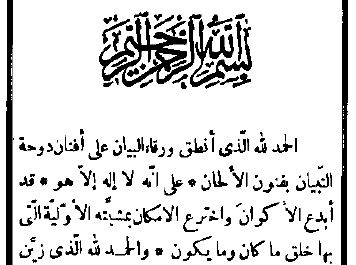 بسم الله الرحمن الرحيم
الحمد لله الّذى أنطق ورقاء البيان على أفنان دوحة
التّبيان بفنون الألحان * على انّه لا إله إلاّ هو * قد
أبدع الأكوان واخترع الامكان بمشيّته الأوّليّة الّتى
بها خلق ما كان وما يكون * والحمد لله الّذى زيّن